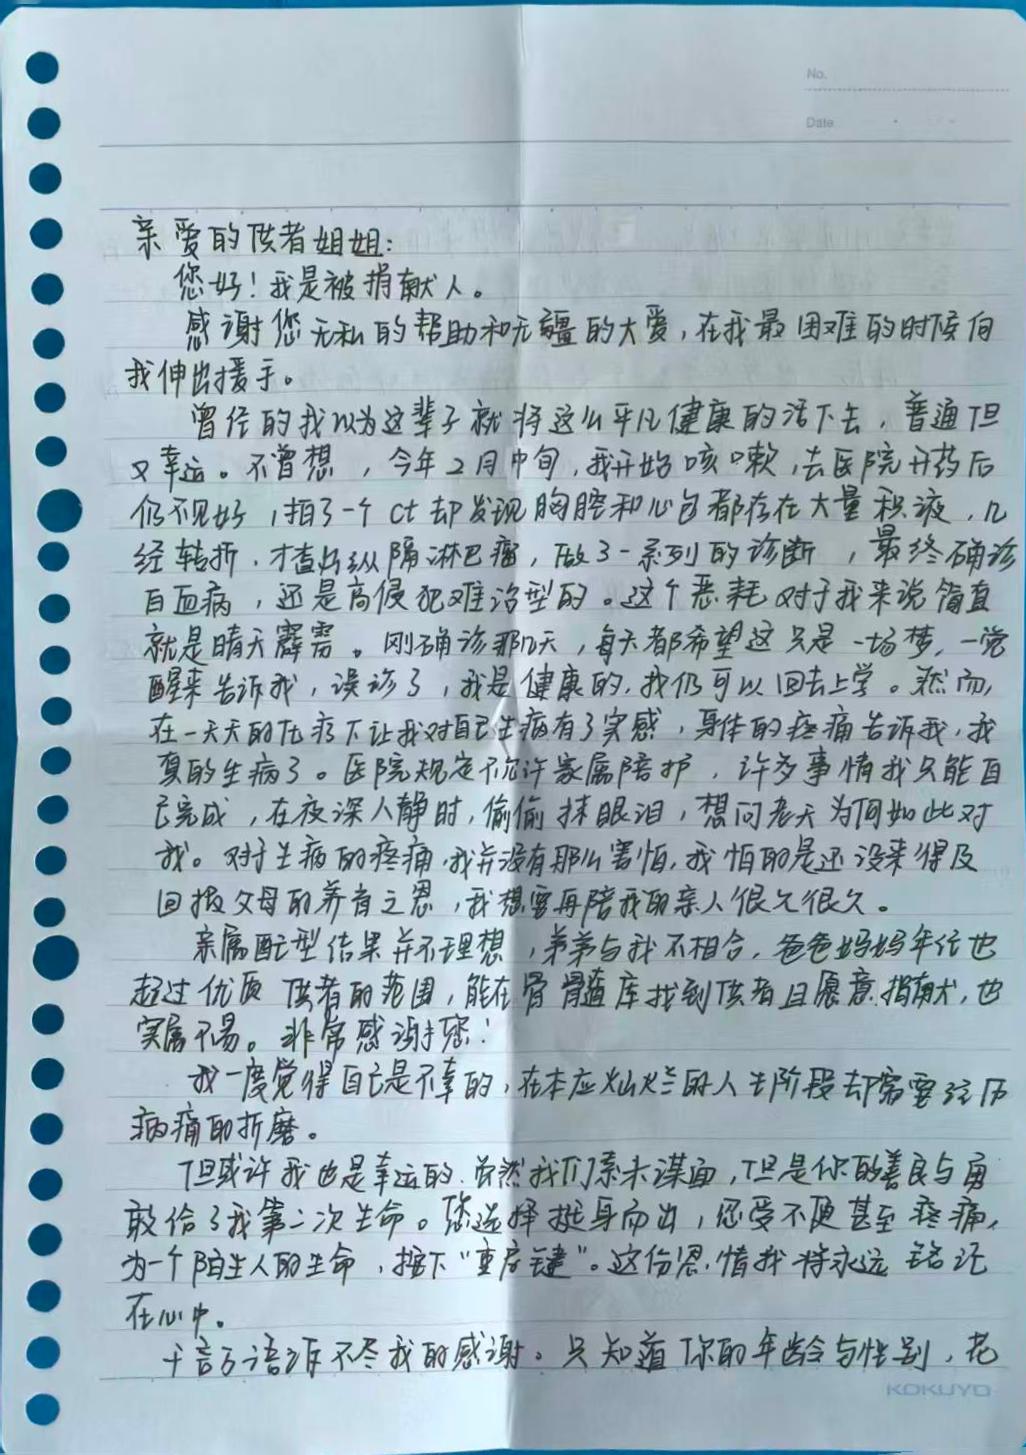 No.
Date
亲爱的供者姐姐：
您好！我是被捐献人。
感谢您无私的帮助和无疆的大爱，在我最困难的时候向
我伸出援手。
曾经的我以为这辈子就将这么平凡健康的活下去，普通但
又幸运。不曾想，今年2月中旬，我开始咳嗽，去医院开药后
仍不见好，拍了一个CT却发现胸腔和心包都存在大量积液，几
经转折，才查出纵隔淋巴瘤，做了一系列的诊断，最终确诊
白血病，还是高侵犯难治型的。这个恶耗对于我来说简直
就是晴天霹雳。刚确诊那几天，每天都希望这只是一场梦，一觉
醒来告诉我，误诊了，我是健康的，我仍可以回去上学。然而，
在一天天的化疗下让我对自己生病有了实感，身体的疼痛告诉我，我
真的生病了。医院规定不允许家属陪护，许多事情我只能自
己完成，在夜深人静时，偷偷抹眼泪，想问老天为何如此对
我。对于生病的疼痛，我并没有那么害怕，我怕的是还没来得及
回报父母的养育之恩，我想要再陪我的亲人很久很久。
亲属配型结果并不理想，弟弟与我不相合，爸爸妈妈年纪也
超过优质供者的范围，能在骨髓库找到供者且愿意捐献，也
实属不易。非常感谢您！
我一度觉得自己是不幸的，在本应灿烂的人生阶段却需要经历
病痛的折磨。
但或许我也是幸运的，虽然我们素未谋面，但是你的善良与勇
敢给了我第二次生命。您选择挺身而出，忍受不便甚至疼痛，
为一个陌生人的生命，按下“重启键”。这份恩情我将永远铭记
在心中。
千言万语诉不尽我的感谢。只知道你的年龄与性别，花
KOKUYO